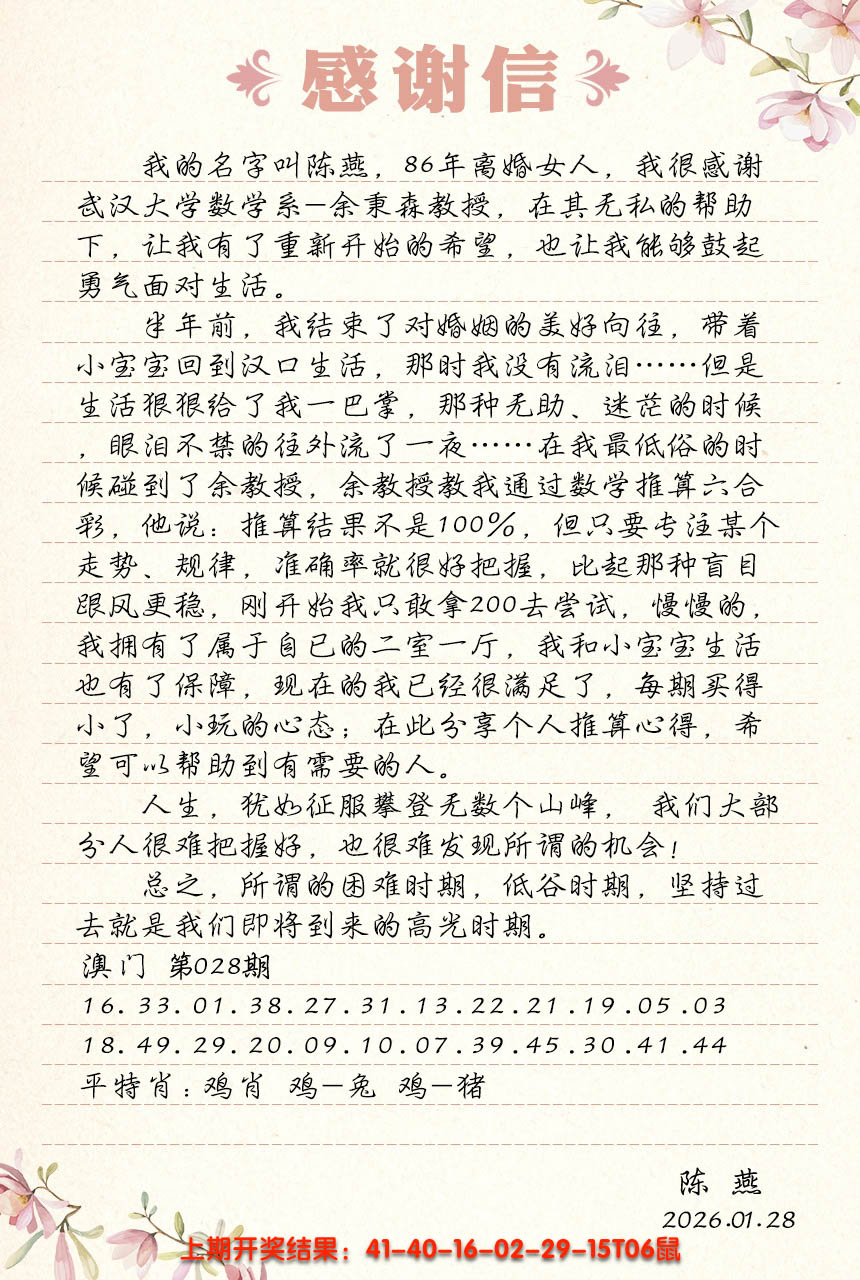 感谢信
我的名字叫陈燕，86年离婚女人，我很感谢
武汉大学数学系—余秉森教授，在其无私的帮助
下，让我有了重新开始的希望，也让我能够鼓起
勇气面对生活。
半年前，我结束了对婚姻的美好向往，带着
小宝宝回到汉口生活，那时我没有流泪……但是
生活狠狠给了我一巴掌，那种无助、迷茫的时候
，眼泪不禁的往外流了一夜……在我最低俗的时
候碰到了余教授，余教授教我通过数学推算六合
彩，他说：推算结果不是100%，但只要专注某个
走势、规律，准确率就很好把握，比起那种盲目
跟风更稳，刚开始我只敢拿200去尝试，慢慢的，
我拥有了属于自已的二室一厅，我和小宝宝生活
也有了保障，现在的我已经很满足了，每期买得
小了，小玩的心态；在此分享个人推算心得，希
望可以帮助到有需要的人。
人生，犹如征服攀登无数个山峰， 我们大部
分人很难把握好，也很难发现所谓的机会！
总之，所谓的困难时期，低谷时期，坚持过
去就是我们即将到来的高光时期。
澳门 第028期
16.33.01.38.27.31.13.22.21.19.05.03
18.49.29.20.09.10.07.39.45.30.41.44
平特肖：鸡肖 鸡—兔 鸡—猪
陈 燕
2026.01.28
上期开奖结果：41-40-16-02-29-15T06鼠